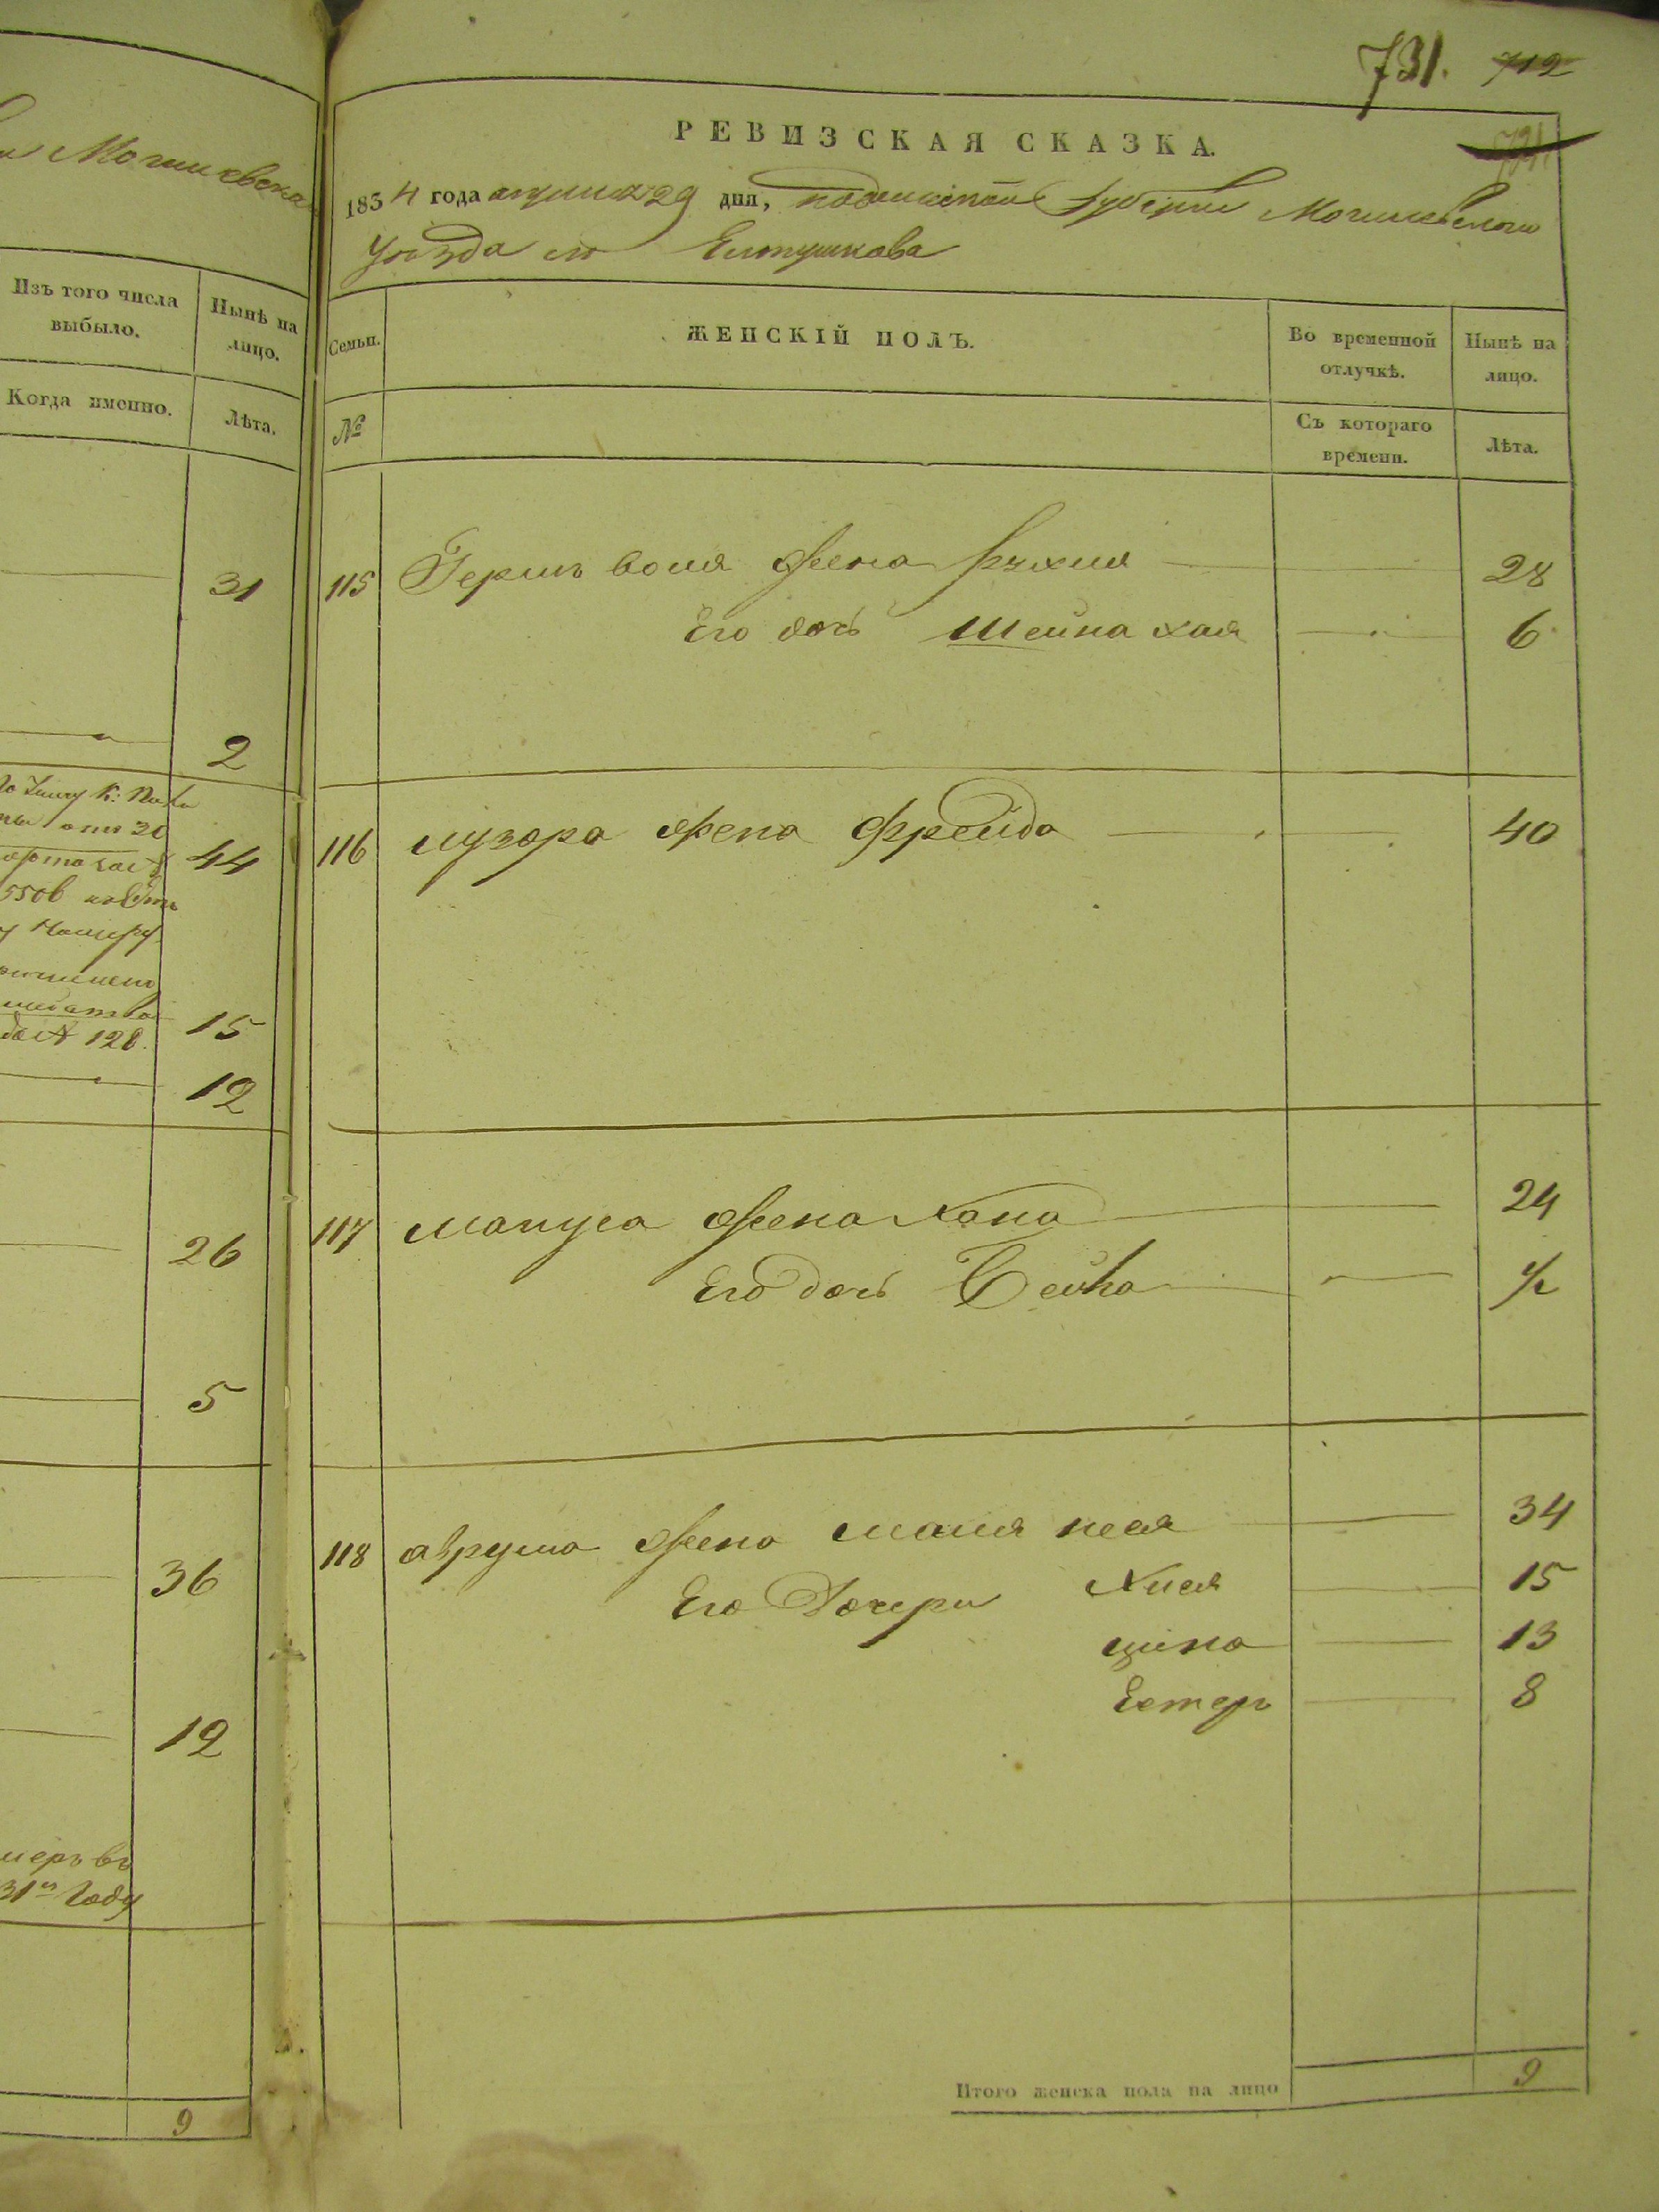 731. 712
РЕВИЗСКАЯ СКАЗКА.
1854 года апреля 29 дня, подольской Губернии Могилевского
Уезда м Елтушкова
Изъ того числа выбыло.
Нынѣ на лицо.
Когда именно.
Лѣта.
Семьи.
№
ЖЕНСКІЙ ПОЛЪ.
Во временной отлучкѣ.
Съ котораго времени.
Нынѣ на лицо.
Лѣта.
31
2
44
15
да № 128.
12
26
5
36
12
меръ въ
31м Году
9
115 Гершъ жена Рухля 28
Его дочь Шейна хая 6
116 лузора жена Фрейда 40
117 мануса жена хана 24
Его дочь Бейла ½
118 аврума жена малия песя 34
Его Дочери Хися 15
цина 13
Естеръ 8
Итого женска пола на лицо 9